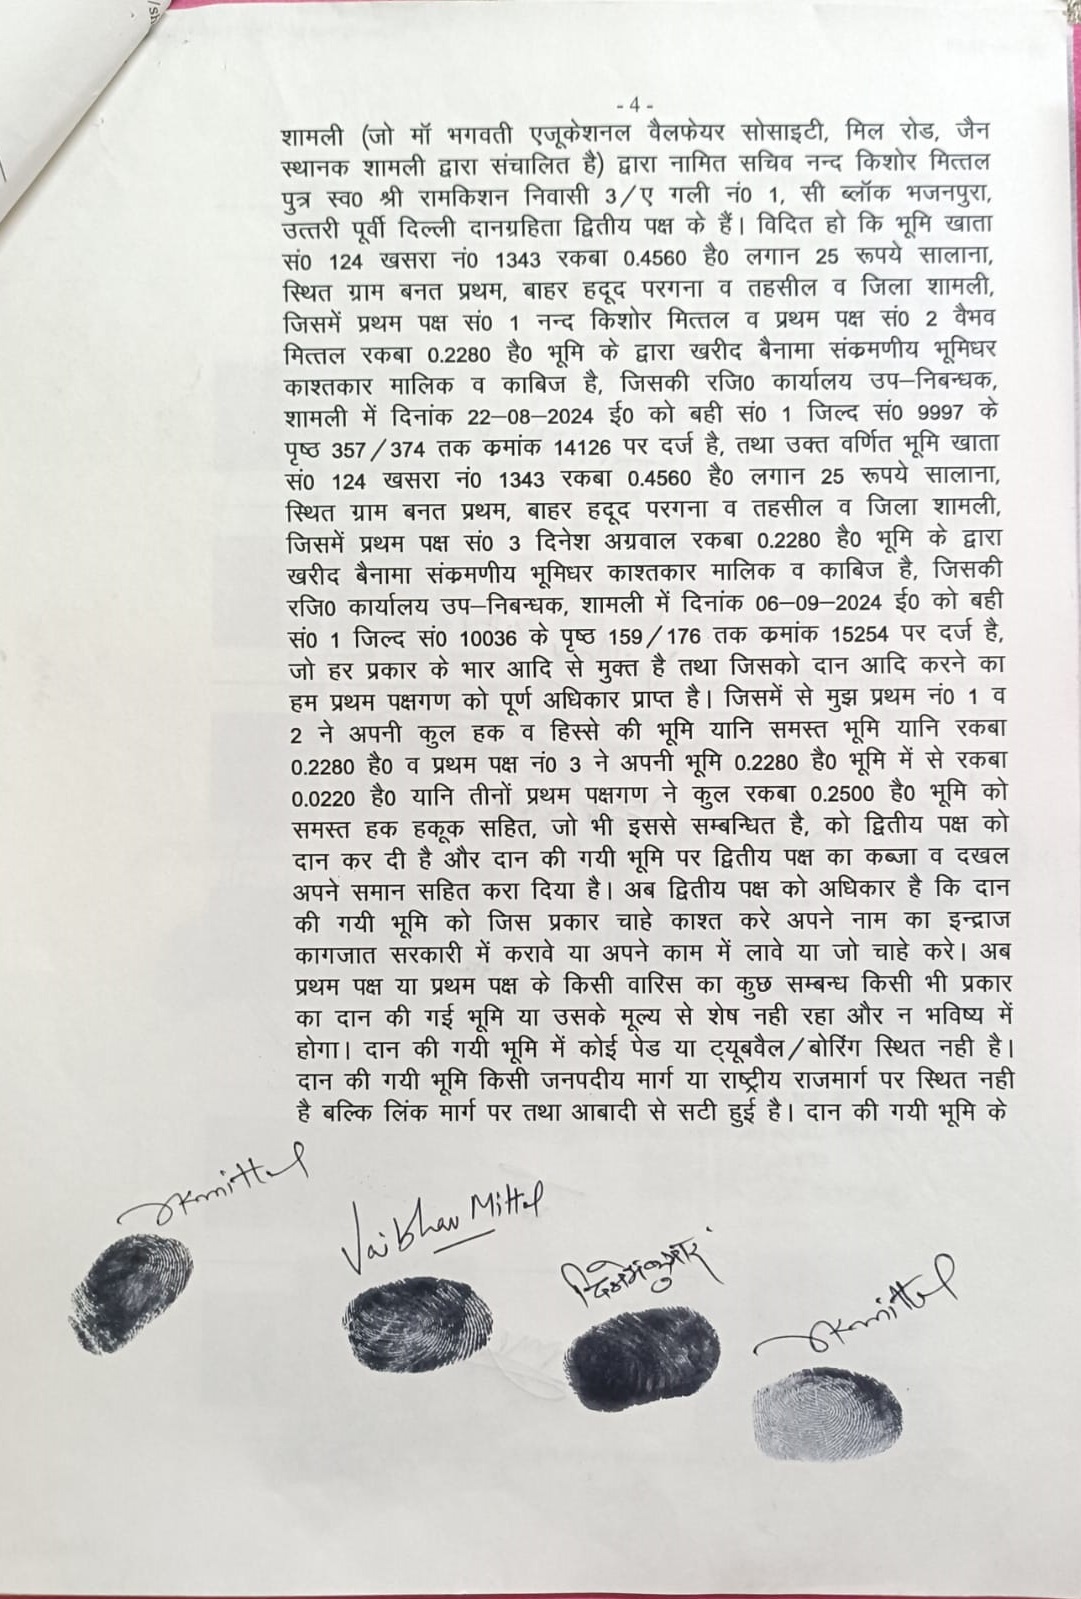 - 4 -
शामली (जो मॉ भगवती एजूकेशनल वैलफेयर सोसाइटी, मिल रोड, जैन
स्थानक शामली द्वारा संचालित है) द्वारा नामित सचिव नन्द किशोर मित्तल
पुत्र स्व0 श्री रामकिशन निवासी 3/ए गली नं0 1, सी ब्लॉक भजनपुरा,
उत्तरी पूर्वी दिल्ली दानग्रहिता द्वितीय पक्ष के हैं। विदित हो कि भूमि खाता
सं0 124 खसरा नं0 1343 रकबा 0.4560 है0 लगान 25 रूपये सालाना,
स्थित ग्राम बनत प्रथम, बाहर हदूद परगना व तहसील व जिला शामली,
जिसमें प्रथम पक्ष सं0 1 नन्द किशोर मित्तल व प्रथम पक्ष सं0 2 वैभव
मित्तल रकबा 0.2280 है0 भूमि के द्वारा खरीद बैनामा संक्रमणीय भूमिधर
काश्तकार मालिक व काबिज है, जिसकी रजि0 कार्यालय उप–निबन्धक,
शामली में दिनांक 22–08–2024 ई0 को बही सं0 1 जिल्द सं0 9997 के
पृष्ठ 357/374 तक क्रमांक 14126 पर दर्ज है, तथा उक्त वर्णित भूमि खाता
सं0 124 खसरा नं0 1343 रकबा 0.4560 है0 लगान 25 रूपये सालाना,
स्थित ग्राम बनत प्रथम, बाहर हदूद परगना व तहसील व जिला शामली,
जिसमें प्रथम पक्ष सं0 3 दिनेश अग्रवाल रकबा 0.2280 है0 भूमि के द्वारा
खरीद बैनामा संक्रमणीय भूमिधर काश्तकार मालिक व काबिज है, जिसकी
रजि0 कार्यालय उप–निबन्धक, शामली में दिनांक 06–09–2024 ई0 को बही
सं0 1 जिल्द सं0 10036 के पृष्ठ 159/176 तक क्रमांक 15254 पर दर्ज है,
जो हर प्रकार के भार आदि से मुक्त है तथा जिसको दान आदि करने का
हम प्रथम पक्षगण को पूर्ण अधिकार प्राप्त है। जिसमें से मुझ प्रथम नं0 1 व
2 ने अपनी कुल हक व हिस्से की भूमि यानि समस्त भूमि यानि रकबा
0.2280 है0 व प्रथम पक्ष नं0 3 ने अपनी भूमि 0.2280 है0 भूमि में से रकबा
0.0220 है0 यानि तीनों प्रथम पक्षगण ने कुल रकबा 0.2500 है0 भूमि को
समस्त हक हकूक सहित, जो भी इससे सम्बन्धित है, को द्वितीय पक्ष को
दान कर दी है और दान की गयी भूमि पर द्वितीय पक्ष का कब्जा व दखल
अपने समान सहित करा दिया है। अब द्वितीय पक्ष को अधिकार है कि दान
की गयी भूमि को जिस प्रकार चाहे काश्त करे अपने नाम का इन्द्राज
कागजात सरकारी में करावे या अपने काम में लावे या जो चाहे करे। अब
प्रथम पक्ष या प्रथम पक्ष के किसी वारिस का कुछ सम्बन्ध किसी भी प्रकार
का दान की गई भूमि या उसके मूल्य से शेष नही रहा और न भविष्य में
होगा। दान की गयी भूमि में कोई पेड या ट्यूबवैल/बोरिंग स्थित नही है।
दान की गयी भूमि किसी जनपदीय मार्ग या राष्ट्रीय राजमार्ग पर स्थित नही
है बल्कि लिंक मार्ग पर तथा आबादी से सटी हुई है। दान की गयी भूमि के
nkmittal
Vaibhav Mittal
दिनेशकुमार
nkmittal